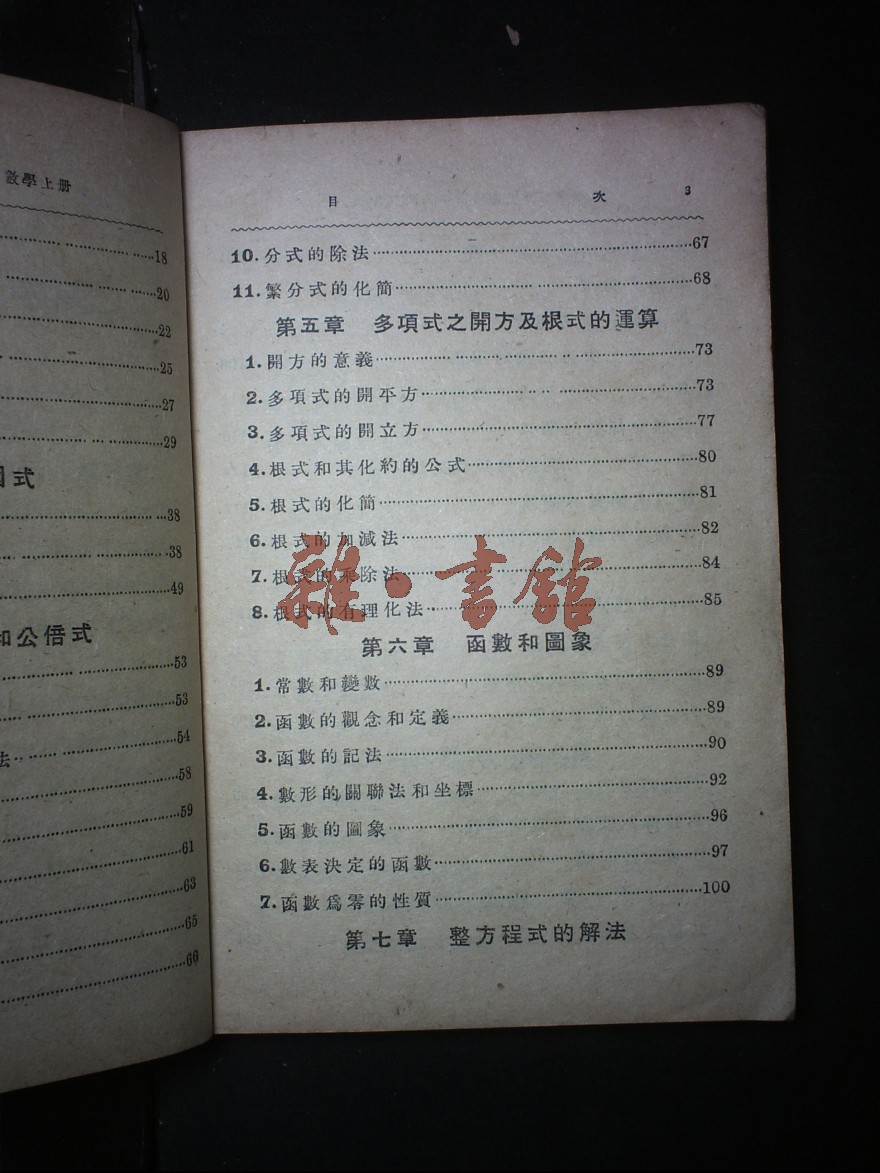 數學上册
18
20
22
25
27
29
式
38
38
49
和公倍式
53
53
法 54
58
59
61
63
65
66
目 次 3
10.分式的除法 67
11.繁分式的化簡 68
第五章 多項式之開方及根式的運算
1.開方的意義 73
2.多項式的開平方 73
3.多項式的開立方 77
4.根式和其化約的公式 80
5.根式的化簡 81
6.根式的加減法 82
7.根式的乘除法 84
8.根式的有理化法 85
雜·書館
第六章 函數和圖象
1.常數和變數 89
2.函數的觀念和定義 89
3.函數的記法 90
4.數形的關聯法和坐標 92
5.函數的圖象 96
6.數表決定的函數 97
7.函數爲零的性質 100
第七章 整方程式的解法